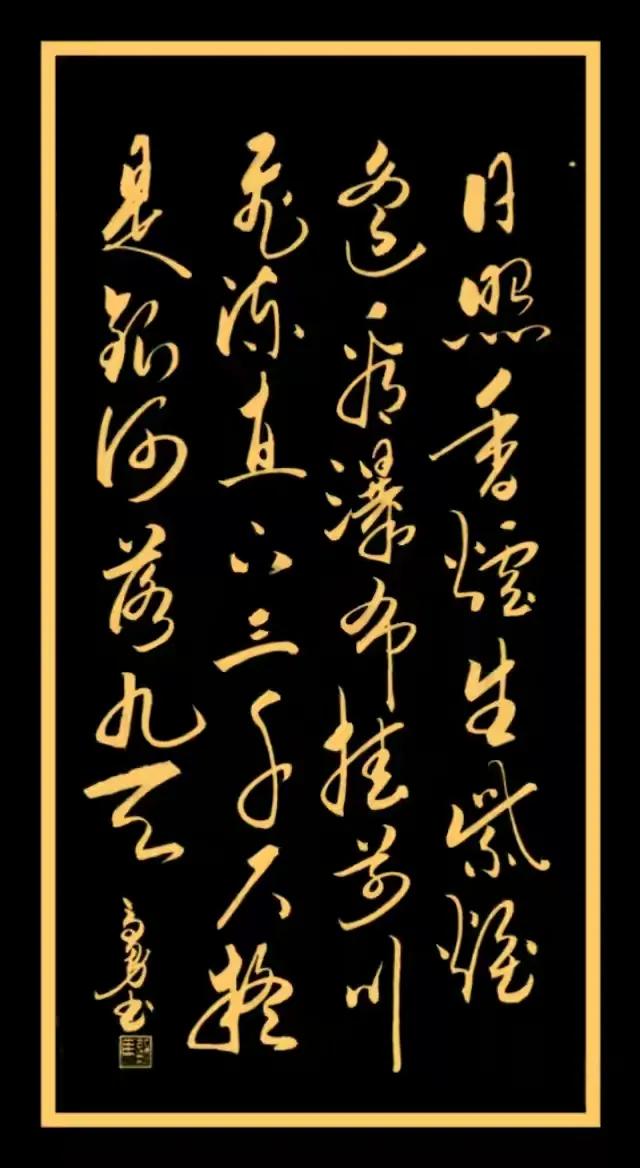 日照香爐生紫煙
遥看瀑布挂前川
飛流直下三千尺疑
是銀河落九天
高勇书